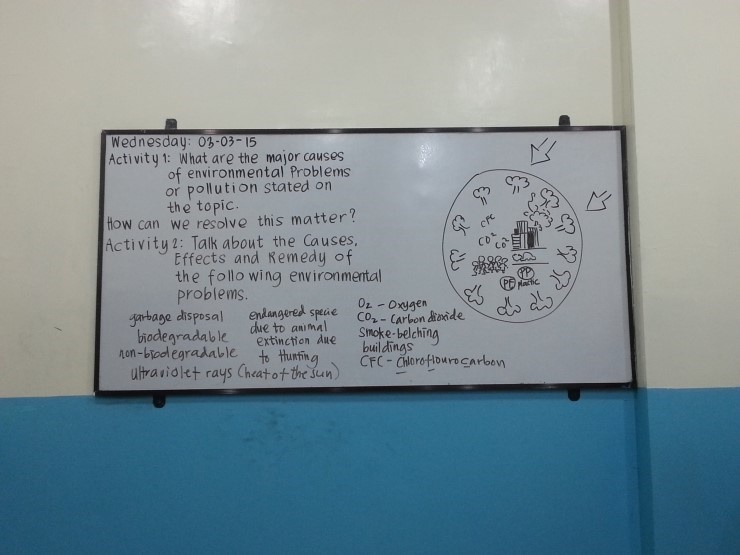 Wednesday: 03-03-15
Activity 1: What are the major causes
of environmental Problems
or pollution stated on
the topic.
How can we resolve this matter?
Activity 2: Talk about the Causes,
Effects and Remedy of
the following environmental
problems.
garbage disposal
biodegradable
non-biodegradable
ultraviolet rays (heat of the sun)
endangered specie
due to animal
extinction due
to Hunting
O2 - Oxygen
CO2 - Carbon dioxide
Smoke-belching
buildings
CFC - Chloroflourocarbon
CFC
CO2
CO2
PE
PP
plastic